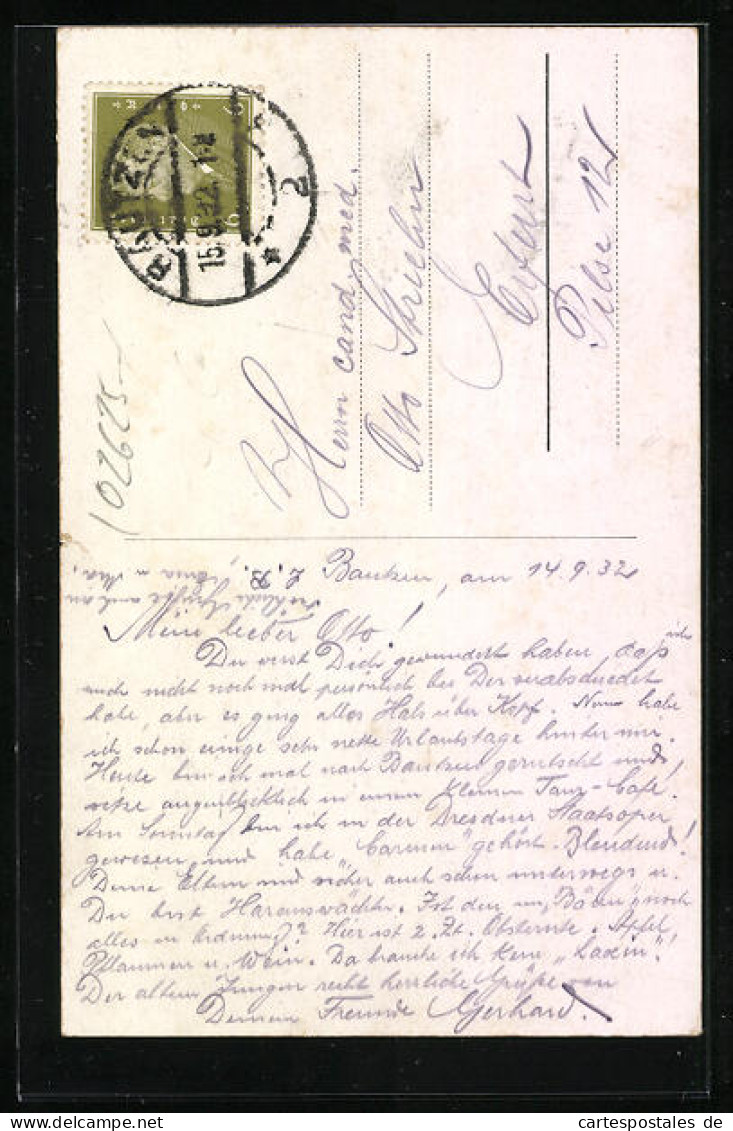 BAUTZEN
15.9.32.
2
6
6
102625
Herrn cand. med.
Otto Striehn
Erfurt
Pilse 12
z. Zt. Bautzen, am 14.9.32
Mein lieber Otto!
Du wirst Dich gewundert haben, daß ich
mich nicht noch mal persönlich bei Dir verabschiedet
habe, aber es ging alles Hals über Kopf. Nun habe
ich schon einige sehr nette Urlaubstage hinter mir.
Heute bin ich mal nach Bautzen gerutscht und
sitze augenblicklich in einem kleinen Tanz-Café.
Am Sonntag bin ich in der Dresdner Staatsoper
gewesen und habe „Carmen" gehört. Blendend!
Deine Eltern sind sicher auch schon unterwegs u.
Du bist Hauswächter. Ist denn im noch
alles in Ordnung? Hier ist z. Zt. Obsternte. Äpfel,
Pflaumen u. Wein. Da brauche ich kein "!
Dir altem Jungen recht herzliche Grüße von
Deinem Freunde Gerhard.
www.cartespostales.de
cartespostales.de